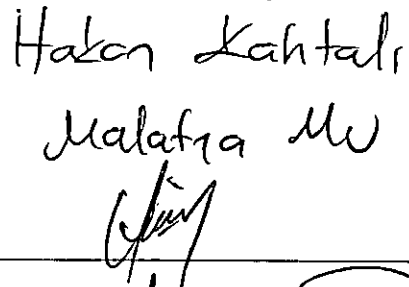 Hakan Kahtalı
Malatya Mv